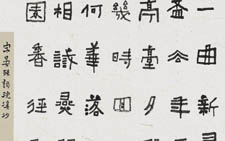 一曲新
盃去年
亭臺夕
幾時回
何華落
相識燕
園香徑
宋晏殊詞浣溪沙